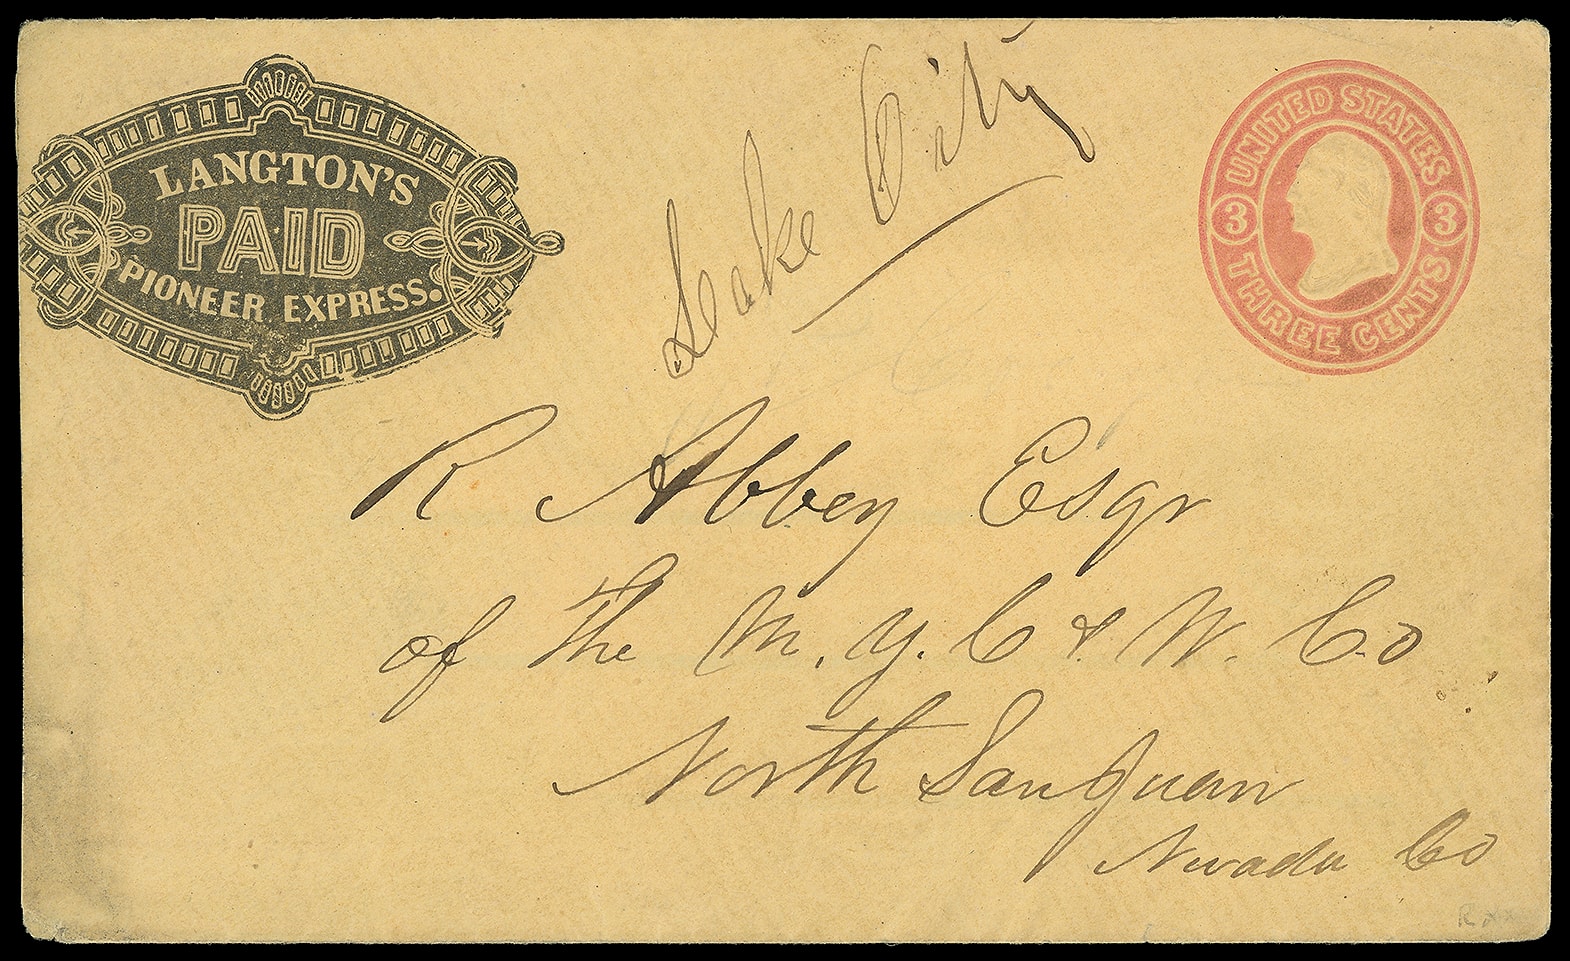 LANGTON'S
PAID
PIONEER EXPRESS.
Lake City
UNITED STATES
3 3
THREE CENTS
R Abbey Esqr
of the M. Y. C & W. Co
North San Juan
Nevada Co